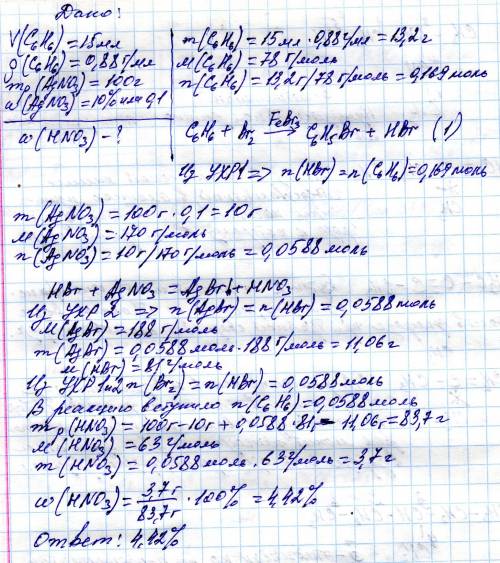 Дано:
V(C₆H₆)=15мл
ρ(C₆H₆)=0,88г/мл
mр(AgNO₃)=100г
ω(AgNO₃)=10% или 0,1
ω(HNO₃)-?
m(C₆H₆)=15мл·0,88г/мл=13,2г
M(C₆H₆)=78г/моль
n(C₆H₆)=13,2г/78г/моль=0,169моль
C₆H₆+Br₂ FeBr₃→ C₆H₅Br+HBr (1)
Из УХР1=> n(HBr)=n(C₆H₆)=0,169моль
m(AgNO₃)=100г·0,1=10г
M(AgNO₃)=170г/моль
n(AgNO₃)=10г/170г/моль=0,0588моль
HBr+AgNO₃=AgBr↓+HNO₃
Из УХР 2 => n(AgBr)=n(HBr)=0,0588моль
M(AgBr)=188г/моль
m(AgBr)=0,0588моль·188г/моль=11,06г
M(HBr)=81г/моль
Из УХР1и2 n(Br₂)=n(HBr)=0,0588моль
В реакцию вступило n(C₆H₆)=0,0588моль
mр(HNO₃)=100г-10г+0,0588·81г-11,06г=83,7г
M(HNO₃)=63г/моль
m(HNO₃)=0,0588моль·63г/моль=3,7г
ω(HNO₃)=3,7г/83,7г·100%=4,42%
Ответ: 4,42%